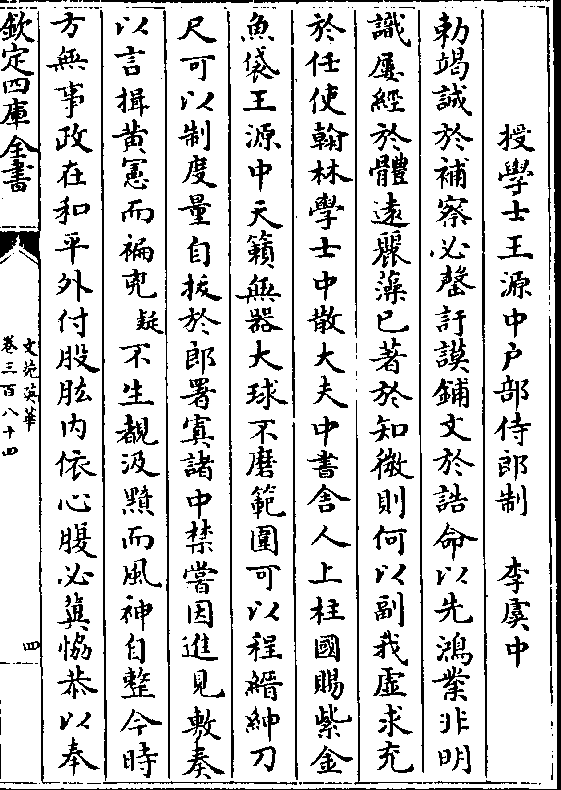 授學士王源中戶部侍郎制　李虞中
勅竭誠於補察必罄訏謨鋪文於誥命以先鴻業非明
識屢經於體遠麗藻已著於知微則何以副我虛求充
於任使翰林學士中散大夫中書舍人上柱國賜紫金
魚袋王源中天籟無器大球不磨範圍可以程縉紳刀
尺可以制度量自拔於郎署寘諸中禁嘗因進見敷奏
以言揖黄憲而褊𠒋疑不生覩汲黯而風神自整今時
方無事政在和平外付股肱内依心腹必冀恊恭以奉
欽定四庫全書
文苑英華
卷三百八十四
四